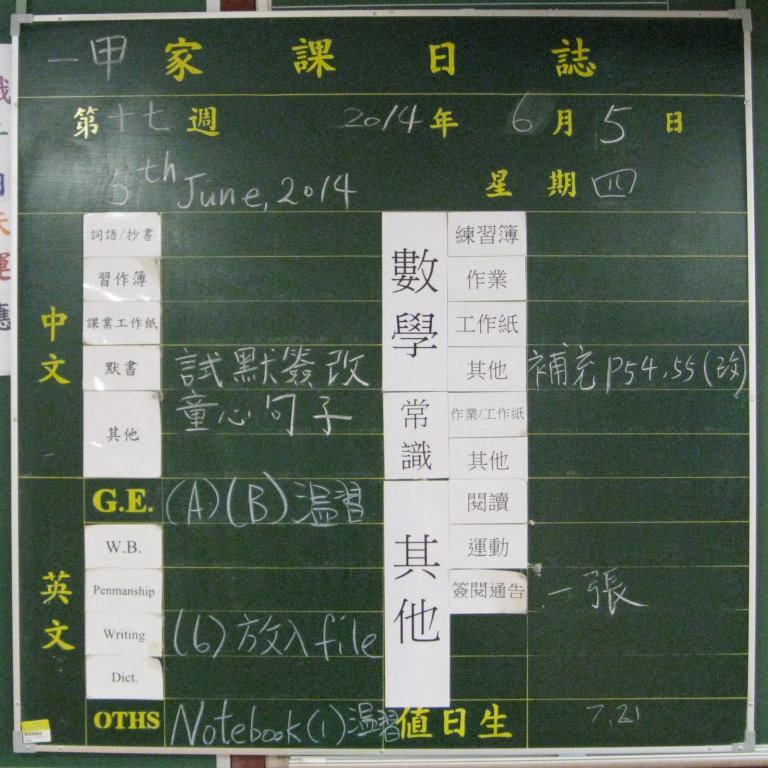 一甲家課日誌
第十七週 2014年6月5日
5th June, 2014 星期四
中文
詞語/抄書
習作簿
課業工作紙
默書 試默簽改
其他 童心句子
英文
G.E. (A)(B)温習
W.B.
Penmanship
Writing (6)放入file
Dict.
OTHS Notebook(1)温習
數學
練習簿
作業
工作紙
其他 補充P54,55(改)
常識
作業/工作紙
其他
其他
閱讀
運動
簽閱通告 一張
值日生 7,21